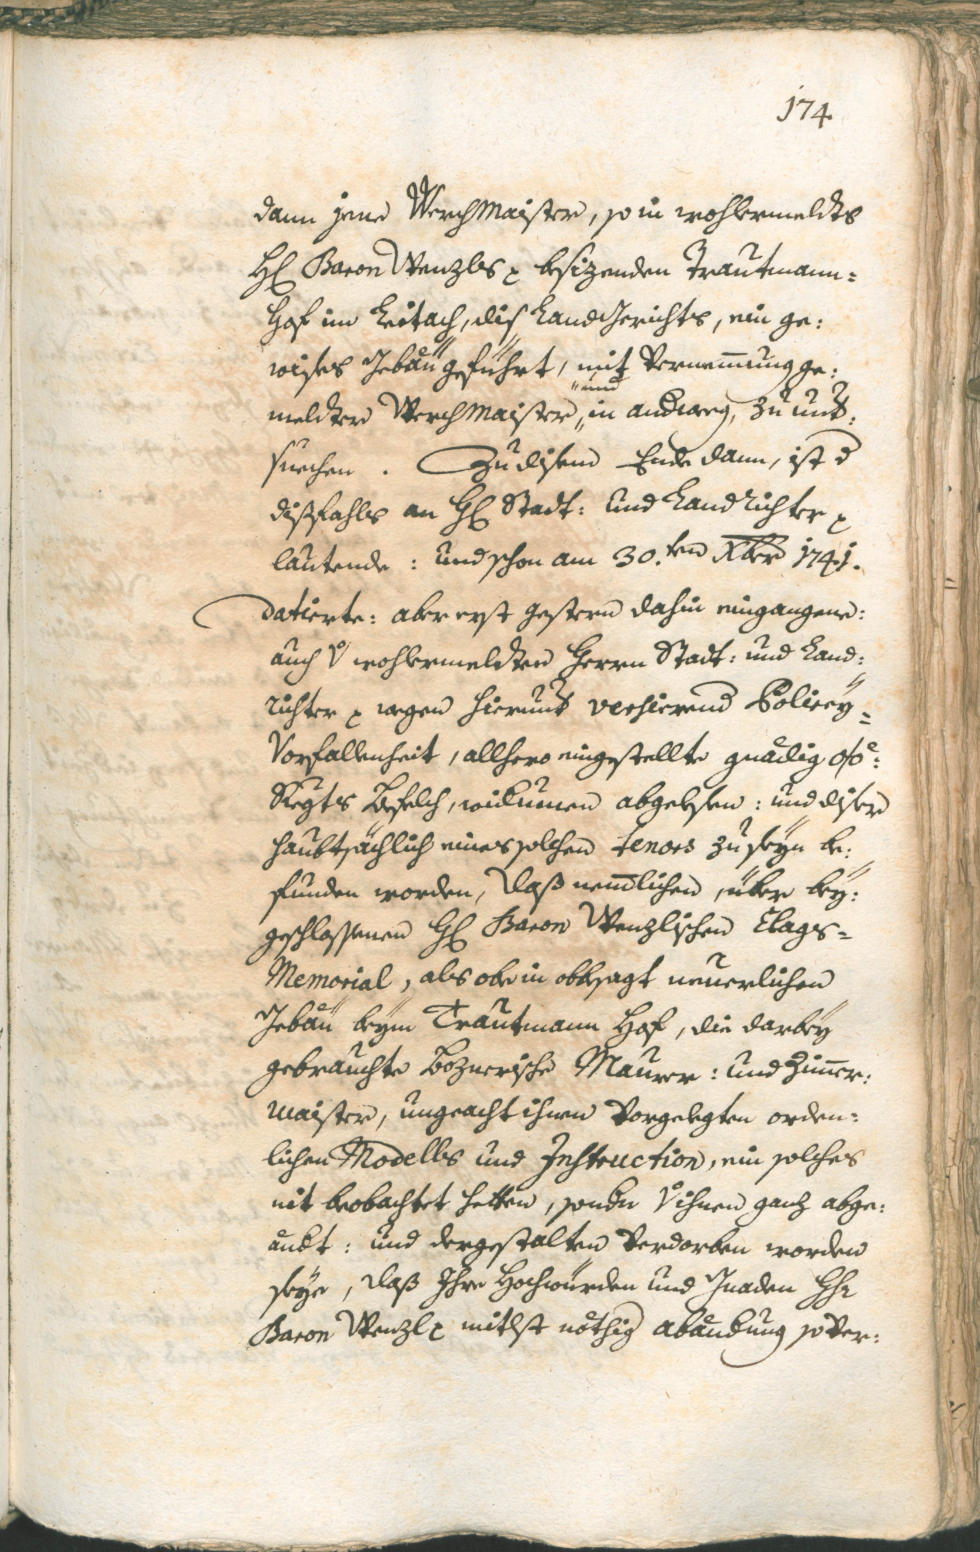 174.
dann jene WerchMaister, so in wohlermeldts
H: Baron Wenzls p: besizenden Trautmann=
Hof im Leitach, diß LandGerichts, ein ge:
wises Gebäu gefüehrt, mit Vernemmung ge:
meldter WerchMaister, und
in andweg, zu unt:
suechen. Zu disem Ende dann, ist d
dißfahls an H: Stadt: und LandRichter p:
lautende: und schon am 30.ten Xber 1741.
Datierte: aber erst gestern dahin eingangene:
auch v wohlermeldten Herrn Stadt: und Land:
Richter p: wegen hierunt versierend Policeÿ=
Vorfallenheit, allhero eingestellte gnädig oö:
Regts Befelch, widumen abgelesen: und diser
haubtsächlich eines solchen tenors zu seÿn be:
funden worden, daß nemlichen, über beÿ:
geschlossenen H: Baron Wenzlischen Clags=
Memorial, als obe in obbesagt neuerlichen
Gebäu beÿm Trautmann Hof, die darbeÿ
gebrauchte Boznerische Maurer: und Zimmer:
maister, ungeacht ihnen Vorgelegten orden:
lichen Modells und Instruction, ein solches
nit beobachtet hetten, sondn v ihnen ganz abge:
ändt: und dergestalten Verdorben worden
seÿe, daß Ihre Hochwürden und Gnaden Hh:
Baron Wenzl p: mitlst nöthig abändung so Ver: